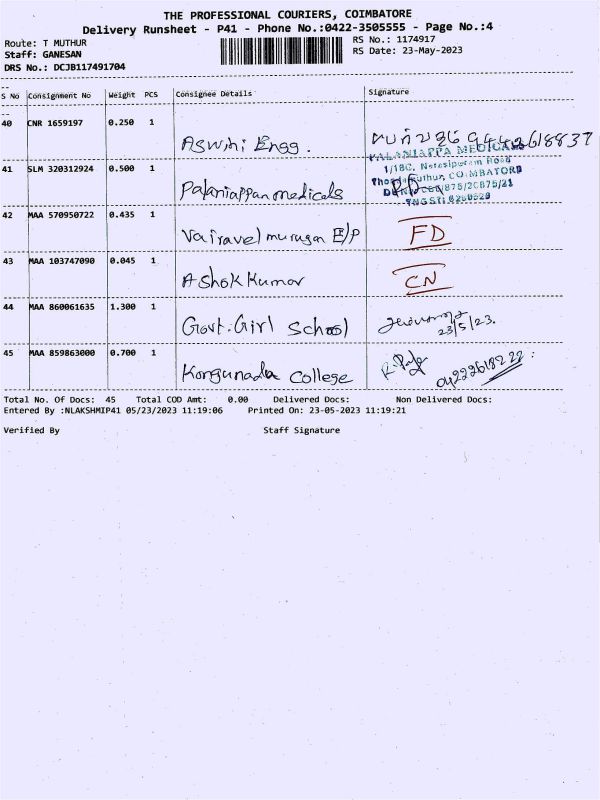 THE PROFESSIONAL COURIERS, COIMBATORE
Delivery Runsheet - P41 - Phone No.:0422-3505555 - Page No.:4
Route: T MUTHUR RS No.: 1174917
Staff: GANESAN RS Date: 23-May-2023
DRS No.: DCJB117491704
S No Consignment No Weight PCS Consignee Details Signature
40 CNR 1659197 0.250 1 Aswini Engg. 9442618837
PALANIAPPA MEDICALS
41 SLM 320312924 0.500 1 Palaniappan medicals
42 MAA 570950722 0.435 1 Vairavel murugan E/P FD
43 MAA 103747090 0.045 1 Ashok Kumar CN
44 MAA 860061635 1.300 1 Govt. Girl School 23/5/23.
45 MAA 859863000 0.700 1 Kongunadu College
Total No. Of Docs: 45 Total COD Amt: 0.00 Delivered Docs: Non Delivered Docs:
Entered By :NLAKSHMIP41 05/23/2023 11:19:06 Printed On: 23-05-2023 11:19:21
Verified By Staff Signature